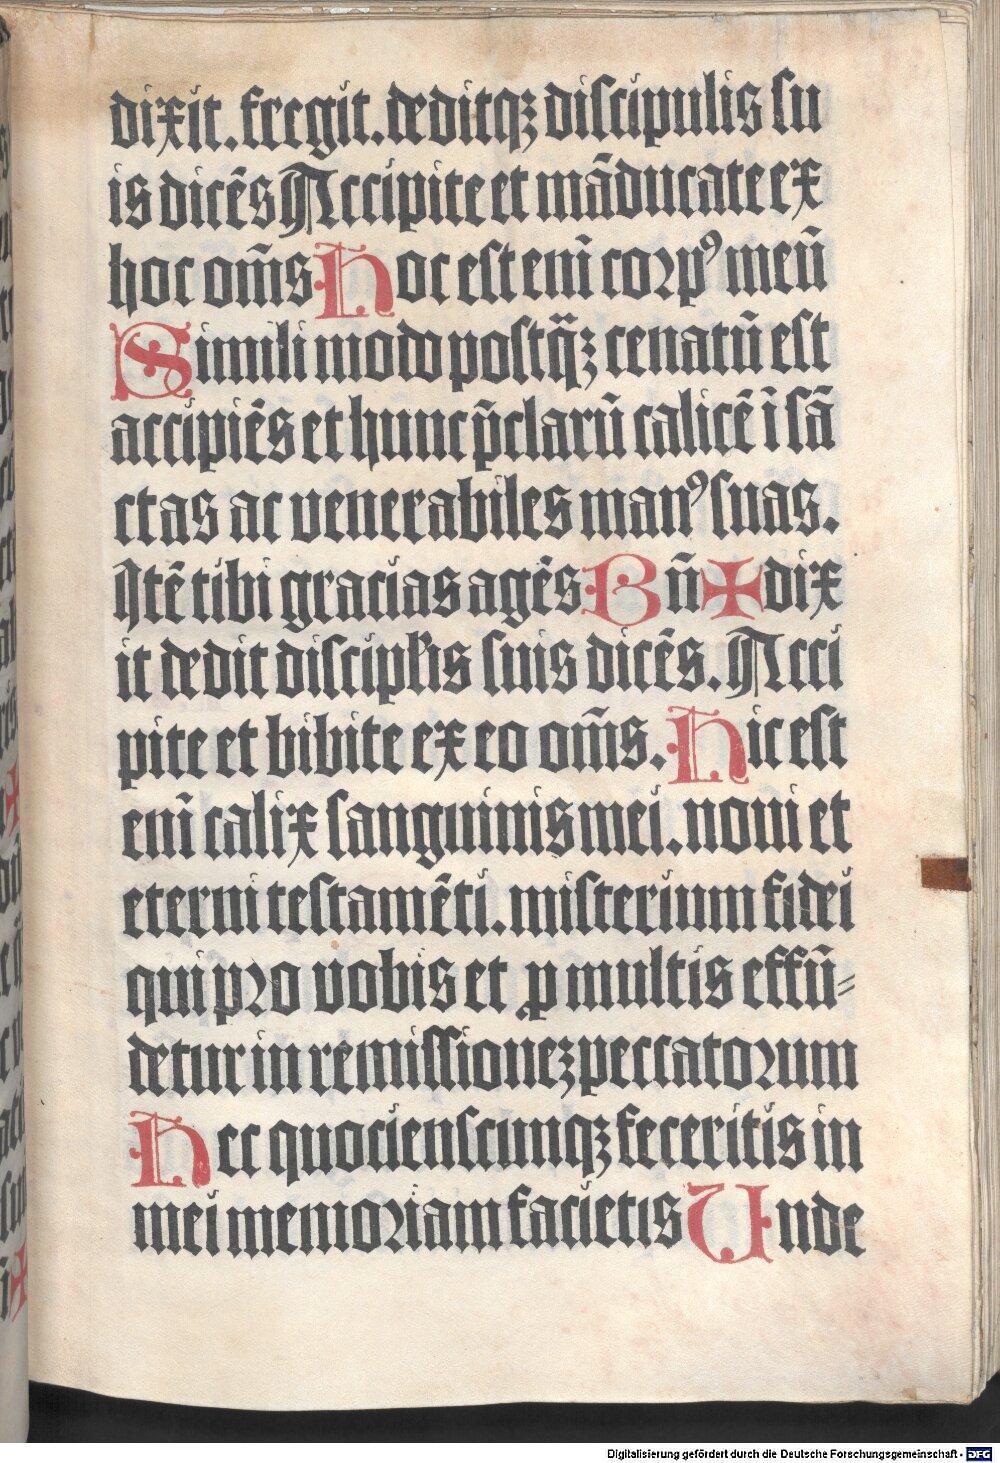 dixit. fregit. deditqꝫ discipulis su
is dicēs Accipite et māducate ex
hoc om̄s Hoc est eni̅ corpꝰ meū
Simili modo postq̈ꝫ cenatū est
accipiēs et hunc p̄clarū calicē ī sā
ctas ac venerabiles manꝰ suas.
Itē tibi gracias agēs Bn̄ ✠ dix
it dedit discipłis suis dicēs. Acci
pite et bibite ex eo om̄s. Hic est
eni̅ calix sanguinis mei. noui et
eterni testamēti. misterium fidei
qui pro vobis et ꝓ multis effū⸗
detur in remissioneꝫ peccatorum
Hec quocienscunqꝫ feceritis in
mei memoriam facietis Unde
Digitalisierung gefördert durch die Deutsche Forschungsgemeinschaft - DFG